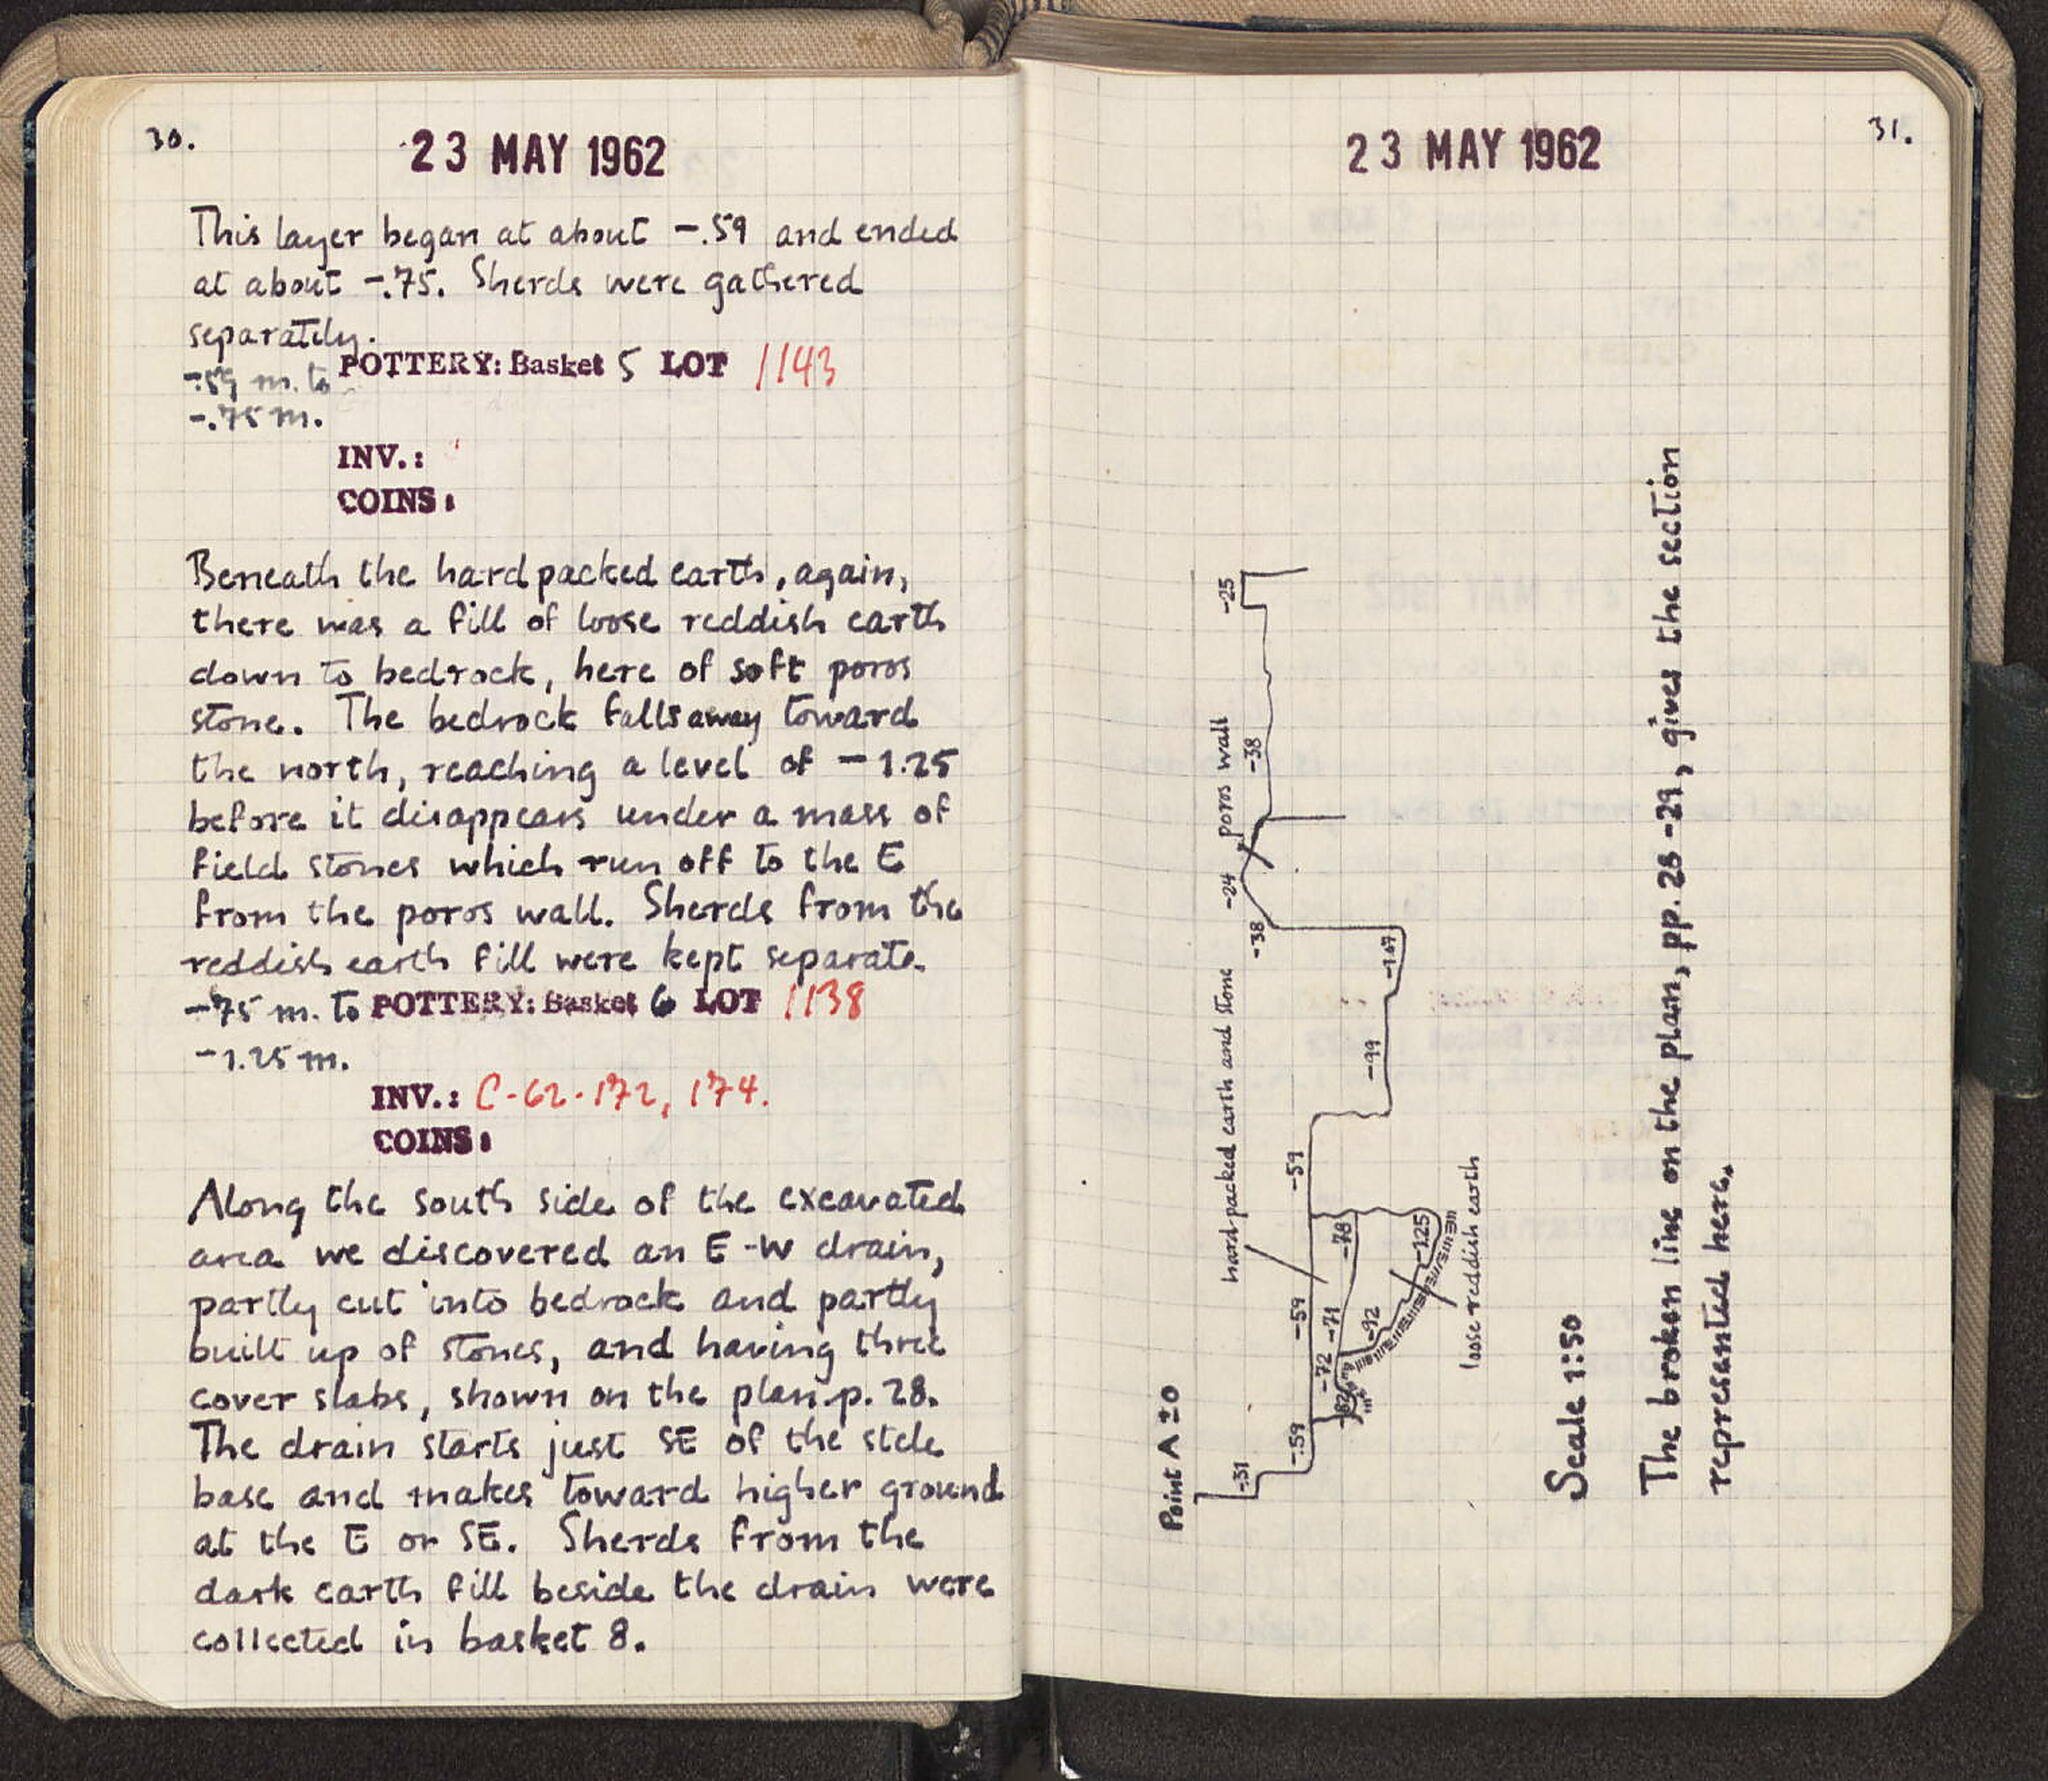 30.
23 MAY 1962
This layer began at about -.59 and ended
at about -.75. Sherds were gathered
separately.
-.59 m. to POTTERY: Basket 5 LOT 1143
-.75 m.
INV.:
COINS:
Beneath the hard packed earth, again,
there was a fill of loose reddish earth
down to bedrock, here of soft poros
stone. The bedrock falls away toward
the north, reaching a level of -1.25
before it disappears under a mass of
field stones which run off to the E
from the poros wall. Sherds from the
reddish earth fill were kept separate.
-.75 m. to POTTERY: Basket 6 LOT 1138
-1.25 m.
INV.: C-62-172, 174.
COINS:
Along the south side of the excavated
area we discovered an E-W drain,
partly cut into bedrock and partly
built up of stones, and having three
cover slabs, shown on the plan p. 28.
The drain starts just SE of the stele
base and makes toward higher ground
at the E or SE. Sherds from the
dark earth fill beside the drain were
collected in basket 8.
31.
23 MAY 1962
Point A ±0
-.31
-.59
-.82
-.72
-.71
-.92
-.59
-.78
-1.25
-.59
-.99
-1.07
-.38
-.24
-.38
-.25
hard packed earth and stone
poros wall
loose reddish earth
Scale 1:50
The broken line on the plan, pp. 28-29, gives the section
represented here.